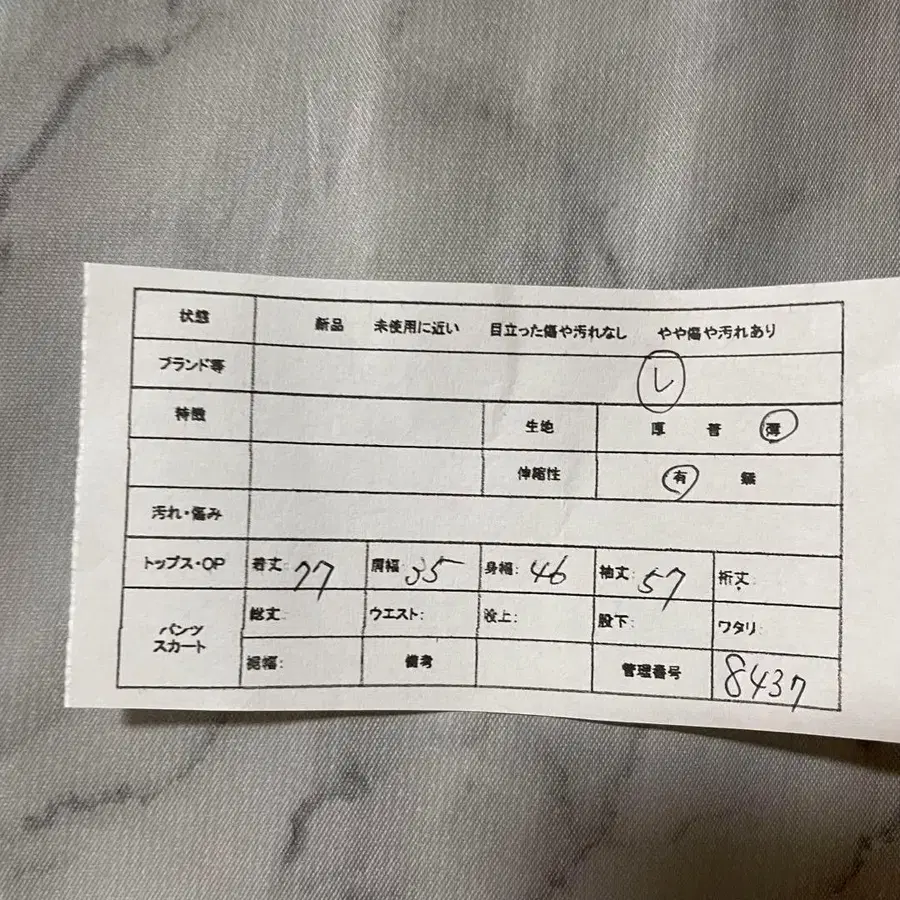 状態 新品 未使用に近い 目立った傷や汚れなし やや傷や汚れあり
ブランド等 レ
特徴 生地 厚 普 薄
伸縮性 有 無
汚れ・傷み
トップス・OP 着丈: 77 肩幅: 35 身幅: 46 袖丈: 57 裄丈:
パンツ スカート 総丈: ウエスト: 股上: 股下: ワタリ:
裾幅: 備考 管理番号 8437